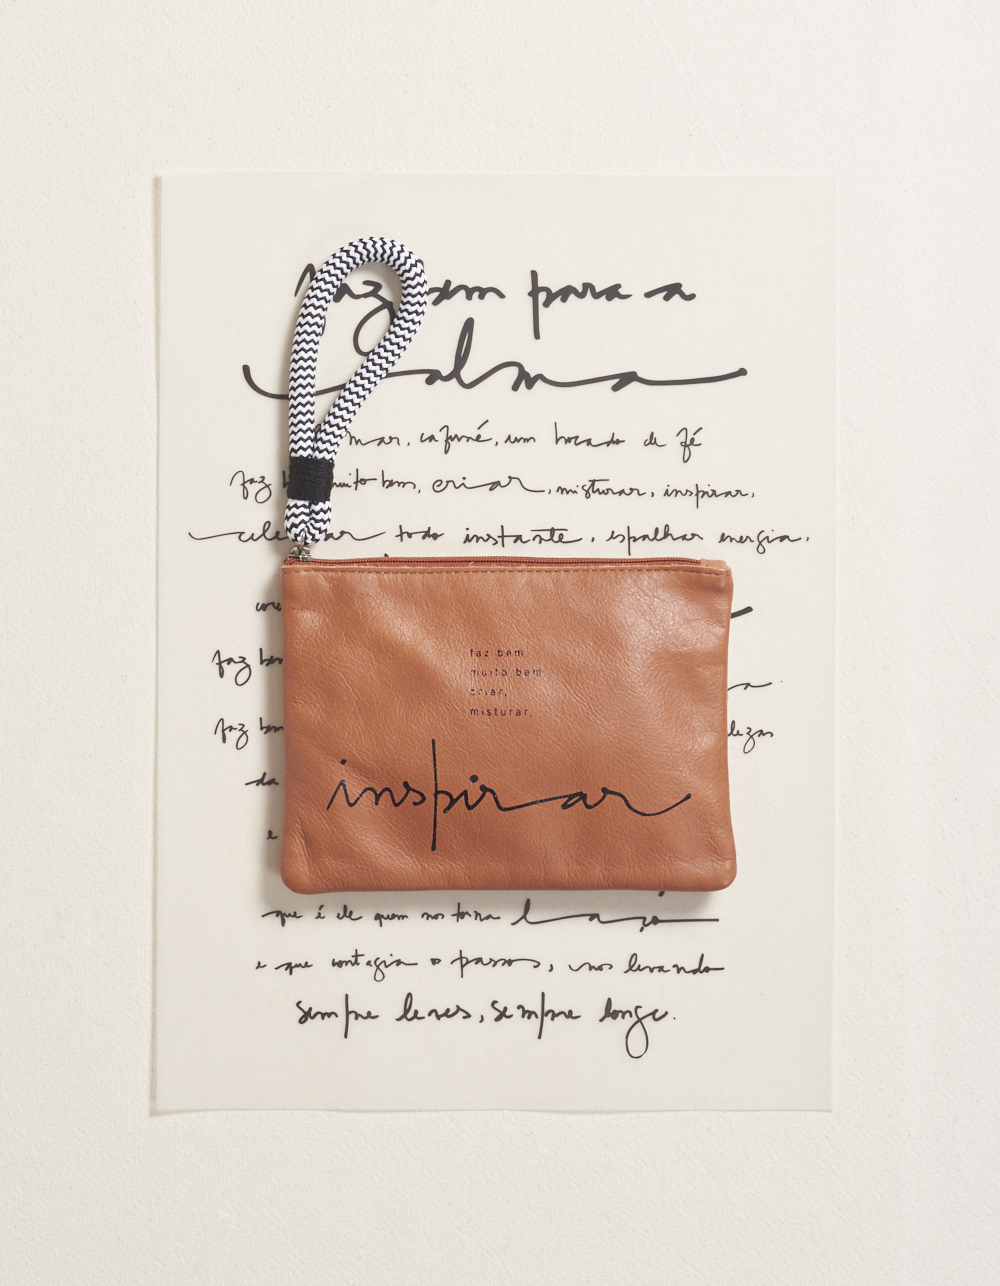 faz bem para a
alma
mar, cafuné, um bocado de fé
faz muito bem, criar, misturar, inspirar,
todo instante, espalhar energia,
faz bem
faz bem
da
e
faz bem,
muito bem,
criar,
misturar,
inspirar
que é ele quem nos torna laço
e que contagia o passos, nos levando
sempre leves, sempre longe.